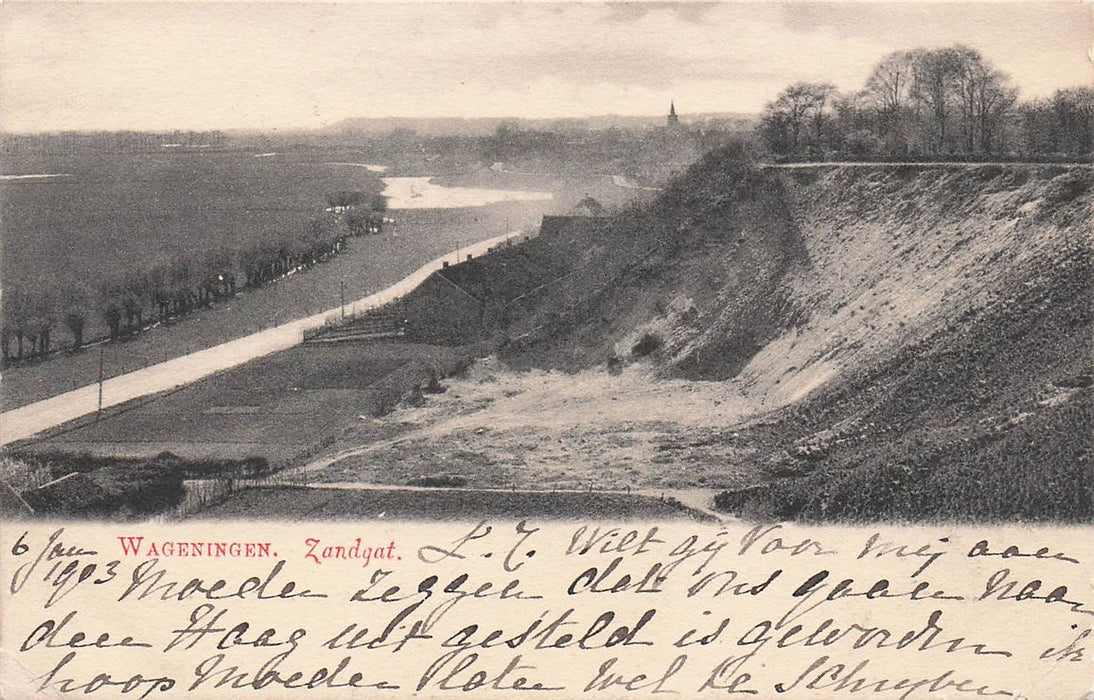 6 Jan WAGENINGEN. Zandgat. L. T. Wilt gij voor mij aan
1903 Moeder zeggen dat ons gaan naar
den Haag uit gesteld is geworden ik
hoop Moeder laten wel te schrijven